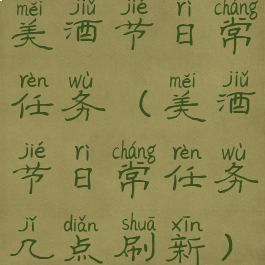 měi jiǔ jié rì cháng
美酒节日常
rèn wù měi jiǔ
任务（美酒
jié rì cháng rèn wù
节日常任务
jǐ diǎn shuā xīn
几点刷新）